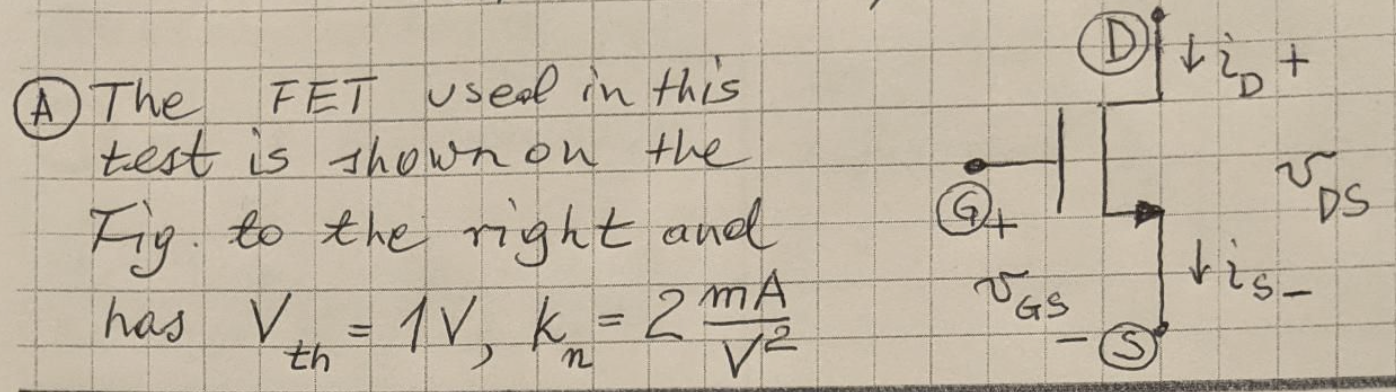 Ⓐ The FET used in this
test is shown on the
Fig. to the right and
has V_th = 1V, k_n = 2 mA/V²
Ⓓ ↓ i_D +
Ⓖ +
v_DS
v_GS
↓ i_S -
- Ⓢ